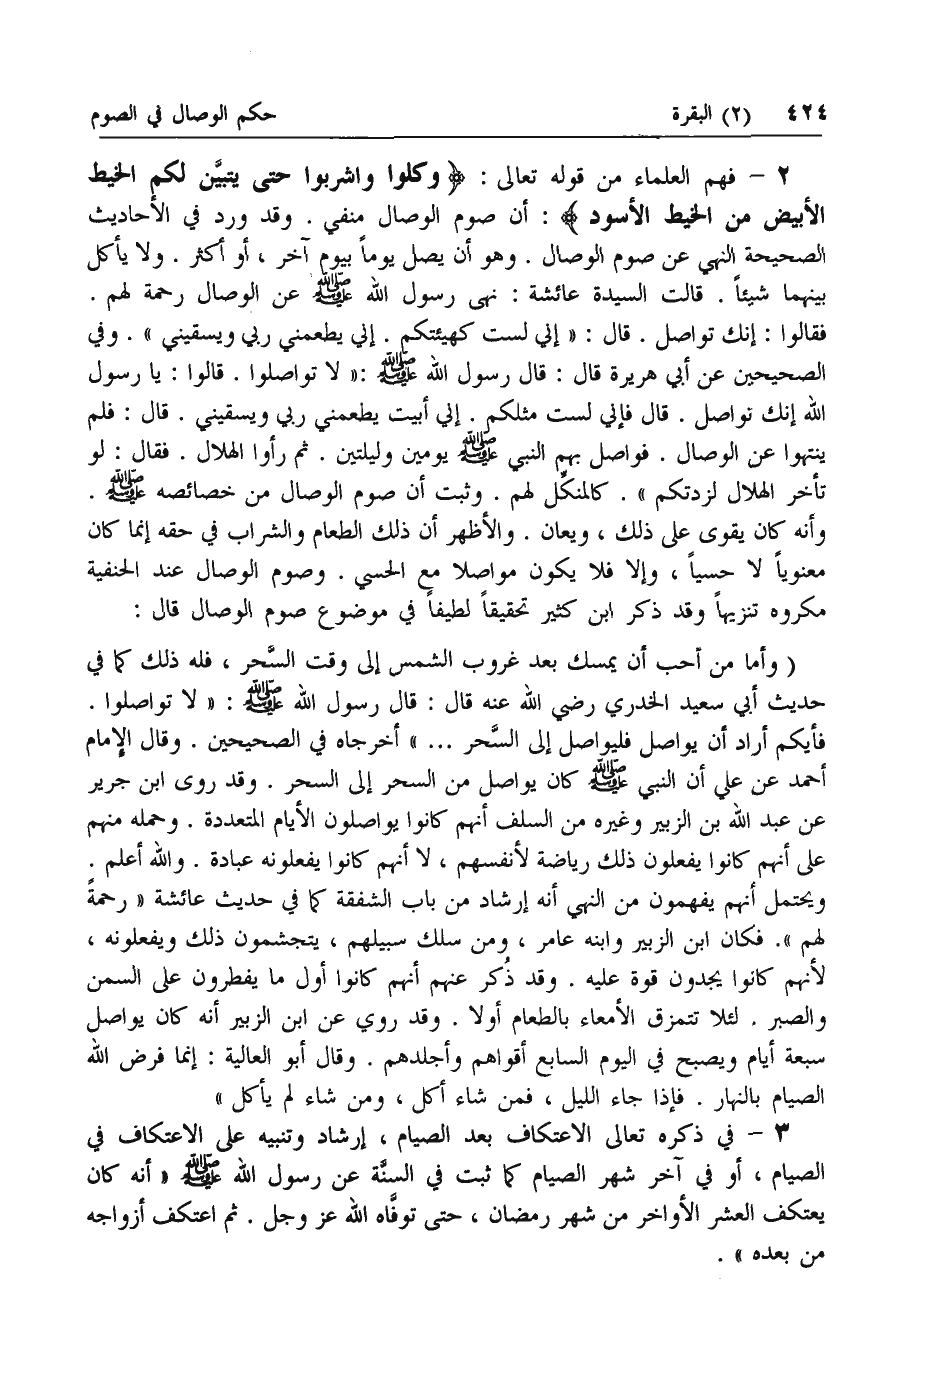 ٤٢٤ (٢) البقرة حكم الوصال في الصوم
٢ – فهم العلماء من قوله تعالى : ﴿ وكلوا واشربوا حتى يتبيَّن لكم الخيط
الأبيض من الخيط الأسود ﴾ : أن صوم الوصال منفي . وقد ورد في الأحاديث
الصحيحة النهي عن صوم الوصال . وهو أن يصل يوماً بيوم آخر ، أو أكثر . ولا يأكل
بينهما شيئاً . قالت السيدة عائشة : نهى رسول الله ﷺ عن الوصال رحمة لهم .
فقالوا : إنك تواصل . قال : « إني لست كهيئتكم . إني يطعمني ربي ويسقيني » . وفي
الصحيحين عن أبي هريرة قال : قال رسول الله ﷺ :« لا تواصلوا . قالوا : يا رسول
الله إنك تواصل . قال فإني لست مثلكم . إني أبيت يطعمني ربي ويسقيني . قال : فلم
ينتهوا عن الوصال . فواصل بهم النبي ﷺ يومين وليلتين . ثم رأوا الهلال . فقال : لو
تأخر الهلال لزدتكم » . كالمنكِّل لهم . وثبت أن صوم الوصال من خصائصه ﷺ .
وأنه كان يقوى على ذلك ، ويعان . والأظهر أن ذلك الطعام والشراب في حقه إنما كان
معنوياً لا حسياً ، وإلا فلا يكون مواصلا مع الحسي . وصوم الوصال عند الحنفية
مكروه تنزيهاً وقد ذكر ابن كثير تحقيقاً لطيفاً في موضوع صوم الوصال قال :
( وأما من أحب أن يمسك بعد غروب الشمس إلى وقت السَّحر ، فله ذلك كما في
حديث أبي سعيد الخدري رضي الله عنه قال : قال رسول الله ﷺ : « لا تواصلوا .
فأيكم أراد أن يواصل فليواصل إلى السَّحر ... » أخرجاه في الصحيحين . وقال الإمام
أحمد عن علي أن النبي ﷺ كان يواصل من السحر إلى السحر . وقد روى ابن جرير
عن عبد الله بن الزبير وغيره من السلف أنهم كانوا يواصلون الأيام المتعددة . وحمله منهم
على أنهم كانوا يفعلون ذلك رياضة لأنفسهم ، لا أنهم كانوا يفعلونه عبادة . والله أعلم .
ويحتمل أنهم يفهمون من النهي أنه إرشاد من باب الشفقة كما في حديث عائشة « رحمةً
لهم ». فكان ابن الزبير وابنه عامر ، ومن سلك سبيلهم ، يتجشمون ذلك ويفعلونه ،
لأنهم كانوا يجدون قوة عليه . وقد ذُكر عنهم أنهم كانوا أول ما يفطرون على السمن
والصبر . لئلا تتمزق الأمعاء بالطعام أولا . وقد روي عن ابن الزبير أنه كان يواصل
سبعة أيام ويصبح في اليوم السابع أقواهم وأجلدهم . وقال أبو العالية : إنما فرض الله
الصيام بالنهار . فإذا جاء الليل ، فمن شاء أكل ، ومن شاء لم يأكل »
٣ – في ذكره تعالى الاعتكاف بعد الصيام ، إرشاد وتنبيه على الاعتكاف في
الصيام ، أو في آخر شهر الصيام كما ثبت في السنَّة عن رسول الله ﷺ « أنه كان
يعتكف العشر الأواخر من شهر رمضان ، حتى توفَّاه الله عز وجل . ثم اعتكف أزواجه
من بعده » .